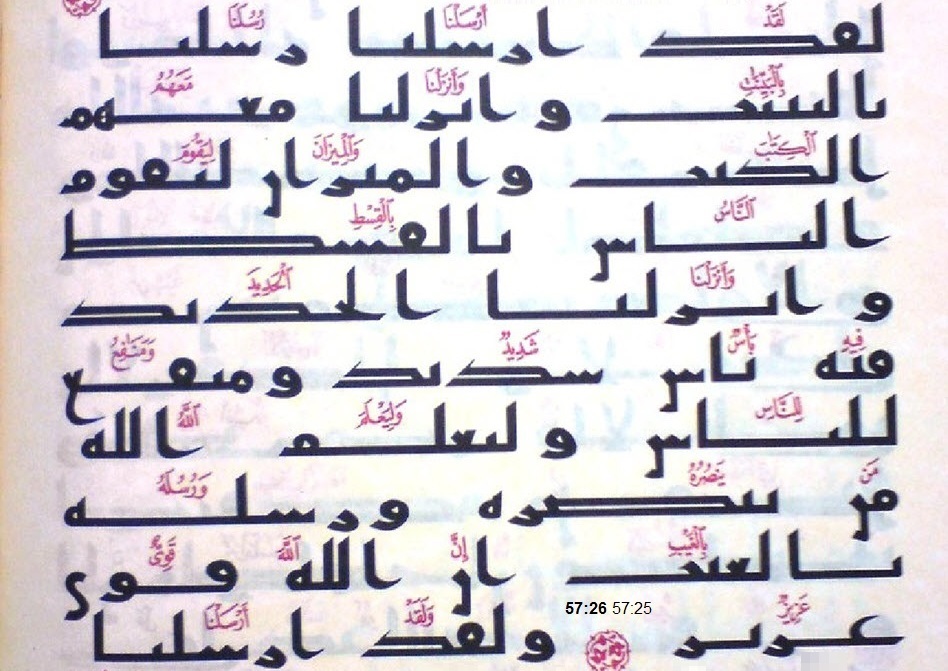 لَقَدْ أَرْسَلْنَا رُسُلَنَا
لقد ارسلنا رسلنا
بِالْبَيِّنَٰتِ وَأَنزَلْنَا مَعَهُمُ
بالبينت وانزلنا معهم
ٱلْكِتَٰبَ وَٱلْمِيزَانَ لِيَقُومَ
الكتب والميزان ليقوم
ٱلنَّاسُ بِٱلْقِسْطِ
الناس بالقسط
وَأَنزَلْنَا ٱلْحَدِيدَ
وانزلنا الحديد
فِيهِ بَأْسٌ شَدِيدٌ وَمَنَٰفِعُ
فيه باس شديد ومنفع
لِلنَّاسِ وَلِيَعْلَمَ ٱللَّهُ
للناس وليعلم الله
مَن يَنصُرُهُۥ وَرُسُلَهُۥ
من ينصره ورسله
بِٱلْغَيْبِ إِنَّ ٱللَّهَ قَوِىٌّ
بالغيب ان الله قوى
57:26 57:25
عَزِيزٌ وَلَقَدْ أَرْسَلْنَا
عزيز ولقد ارسلنا